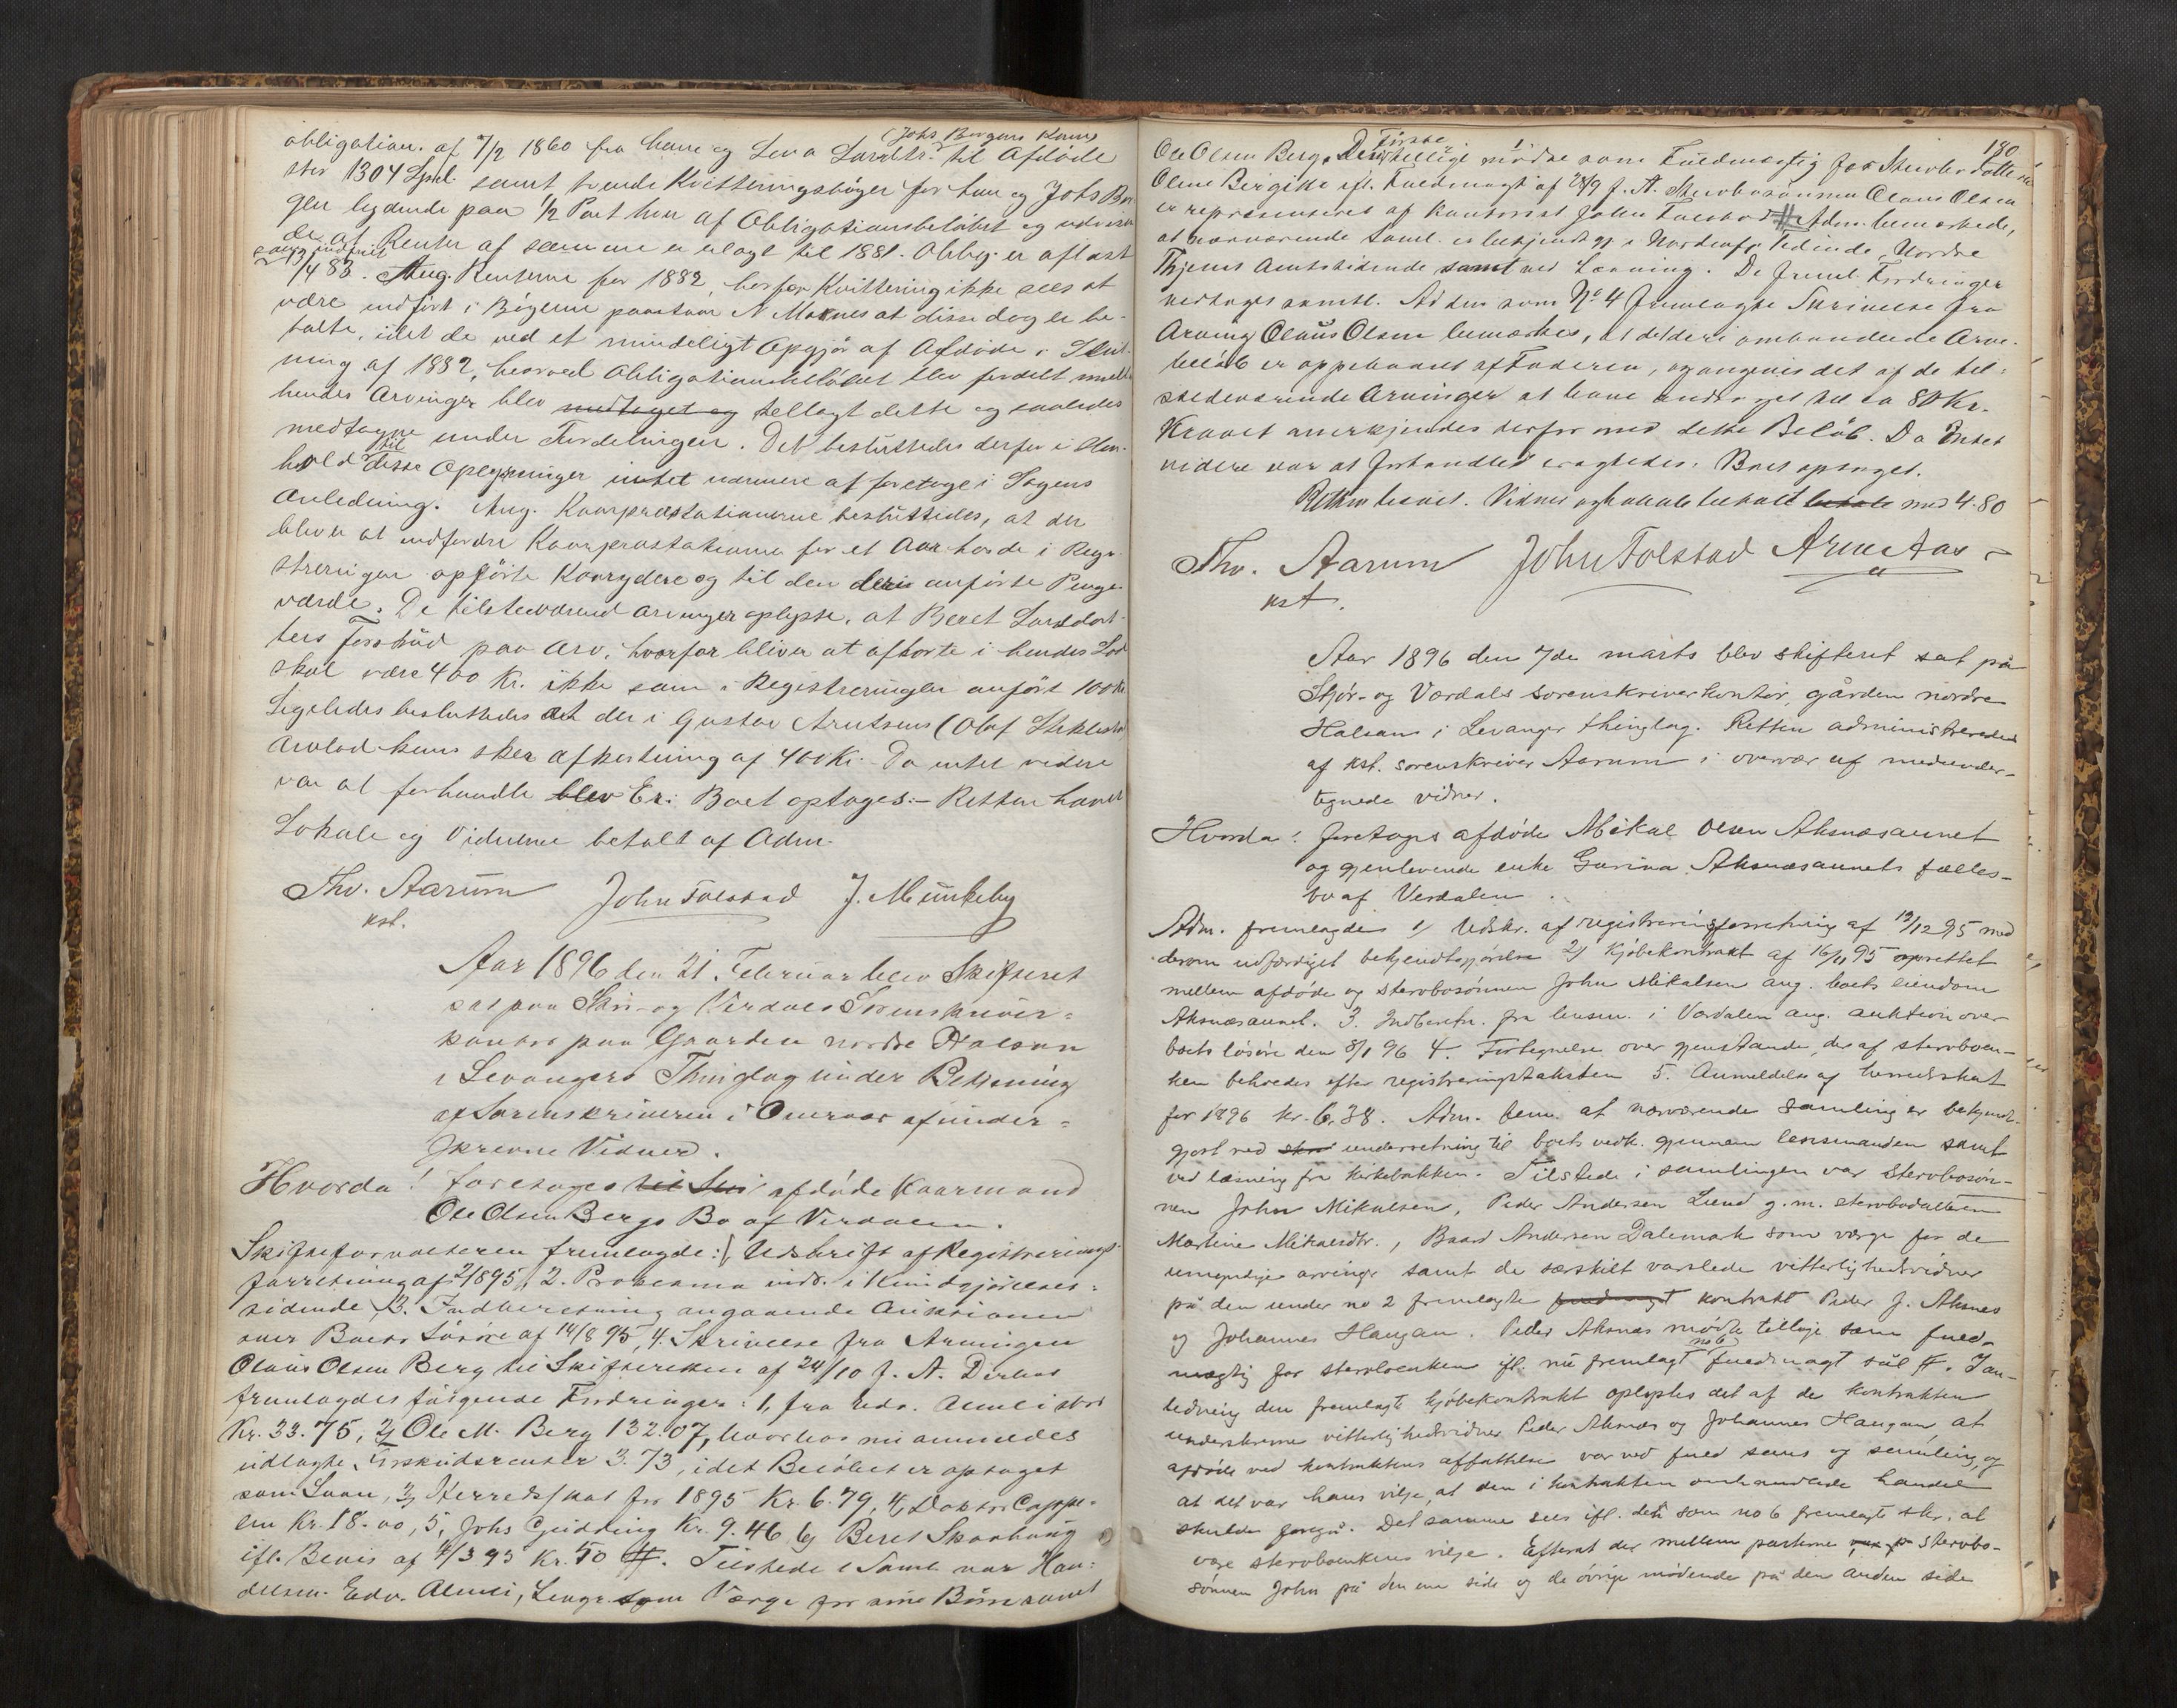 (Johs Bergens Kone)
obligation. af 7/2 1860 fra ham og Lena Larsdtr. til Afdøde
stor 1304 Spd. samt tvende Kvitteringsbøger for ham og Johs Ber
gen lydende paa 1/2 Part hver af Obligationsbeløbet og udvisen
de at Renter af samme er erlagt til 1881. Oblig. er aflæst
13/4 83. Ang. Renterne for 1882, hvorfor Kvittering ikke sees at
være indført i Bøgerne paastaar N Moknes at disse dog er be-
talte, idet de ved et mindeligt Opgjør af Afdøde i Slut-
ning af 1882, hvorved Obligationsbeløbet blev fordelt mellem
hendes Arvinger blev medtaget og tillagt dette og saaledes
medtagne under Fordelingen. Det besluttedes derfor i Hen-
hold til disse Oplysninger intet nærmere at foretage i Sagens
Anledning. Ang. Kaarpræstationerne besluttedes, at der
bliver at indfordre Kaarpræstationer for et Aar hos de i Regi-
streringen opførte Kaarydere og til den deri anførte Penge-
værdi. De tilstedeværend Arvinger oplyste, at Beret Larsdat-
ters Forskud paa Arv, hvorfor bliver at afkorte i hendes Lod
skal være 400 Kr. ikke som i Registreringen anført 100 Kr.
Ligeledes besluttedes det der i Gustav Arntsens (Olaf Stiklestad
Arvelod kun sker afkortning af 400 Kr. Da intet videre
var at forhandle blev Er: Boet optages:- Retten hævet
Lokale og Vidnerne betalt af Adm.
Thv. Aarum John Tolstad J. Munkeby
kst.
Aar 1896 den 21. Februar blev Skifteret
sat paa Stjør- og Værdals Sorenskriver=
kontor paa Gaarden nordre Halsan
i Levangers Thinglag under Betjening
af Sorenskriveren i Overvær af under=
skrevne Vidner.
Hvorda! foretoges til Sku afdøde Kaarmand
Ole Olsen Bergs Bo af Værdalen.
Skifteforvalteren fremlagde: 1, Udskrift af Registrerings-
forretning af 2/8 95, 2. Proclama indr. i Kundgjørelses=
tidende, 3. Indberetning angaaende Auktionen
over Boets Løsøre af 14/8 95, 4. Skrivelse fra Arvingen
Olaus Olsen Berg til Skifteretten af 24/10 f. A. Derhos
fremlagdes følgende Fordringer: 1, fra Edv. Almli stor
Kr. 33.75, 2, Ole M. Berg 132.07, hvorhos nu anmeldes
udlagte Forskudsrenter 3.73, idet Beløbet er optaget
som Laan, 3, Herredsskat for 1895 Kr. 6.79, 4, Doktor Cappe-
len Kr. 18.00, 5, Johs Gudding Kr. 9.46 6, Beret Skarhaug
ifl. Bevis af 4/3 93 Kr. 50 #. Tilstede i Saml. var Han=
delsm. Edv. Almli, Lensm. som Værge for sine Børn samt
130
Ole Olsen Berg. Den Første tillige mødte som Fuldmægtig for Stervbodatte
Oline Birgitte ifl. Fuldmagt af 28/9 f. A. Stervbosønnen Olaus Olsen
er repræsenteret af Kontorist John Tolstad # Adm. bemærkede,
at nærværende Saml. er bekjendtgj. i Nordenfj. Tidende, Nordre
Thjems Amtstidende samt ved Læsning. De freml. Fordringer
vedtoges samtl. Ad den som No 4 fremlagte Skrivelse fra
Arving Olaus Olsen bemærkes, at det deri omhandlede Arve-
beløb er oppebaaret af Faderen, og angives det af de til=
stedeværende Arvinger at have andraget til ca 80 Kr.
Kravet anerkjendes derfor med dette Beløb. Da Intet
videre var at forhandles eragtedes: Boet optaget.
Retten hævet. Vidner og Lokale betalt betalt med 4.80
Thv. Aarum John Tolstad Arne Aas
kst.
Aar 1896 den 7de marts blev skifteret sat på
Stjør- og Værdals sorenskriverkontor, gården nordre
Halsan i Levanger thinglag. Retten administreredes
af kst. sorenskriver Aarum i overvær af medunder-
tegnede vidner.
Hvorda! foretoges afdøde Mikal Olsen Aksnæsaunet
og gjenlevende enke Gurina Aksnæsaunets fælles-
bo af Verdalen.
Adm. fremlagdes 1) Udskr. af registreringsforretning af 19/12 95 med
derom udfærdiget bekjendtgjørelse 2) Kjøbekontrakt af 16/11 95 oprettet
mellem afdøde og stervbosønnen John Mikalsen ang. boets eiendom
Aksnæsaunet. 3. Indberetn. fra lensm. i Værdalen ang. auktion over
boets løsøre den 8/1 96 4. Fortegnelse over gjenstande, der af stervboen-
ken behoedes efter registreringstaksten 5. Anmeldelse af herredskat
for 1896 kr. 6.38. Adm. bem. at nærværende samling er bekjendt-
gjort ved skr underretning til boets vedk. gjennem lensmanden samt
ved læsning fra kirkebakken. Tilstede i samlingen var stervbosøn-
nen John Mikalsen, Peder Andersen Lund g. m. stervbodatteren
Martine Mikalsdtr., Baard Andersen Dalemark som værge for de
umyndige arvinge samt de særskilt varslede vitterlighedsvidner
på den under no 2 fremlagte fuldmagt kontrakt Peder J. Aksnes
og Johannes Haugan. Peder Aksnæs mødte tillige som fuld-
mægtig for stervboenken ifl. nu fremlagt no 6 fuldmagt sål #. I an-
ledning den fremlagte kjøbekontrakt oplystes det af de kontrakten
underskrevne vitterlighedsvidner Peder Aksnæs og Johannes Haugan at
afdøde ved kontraktens affattelse var ved fuld sans og samling, og
at det var hans vilje, at den i kontrakten omhandlede handel
skulde foregå. Det samme sees ifl. den som no 6 fremlagte skr. at
være stervboenkens vilje. Efterat der mellem parterne stervbo-
sønnen John på den ene side og de øvrige mødende på den anden side